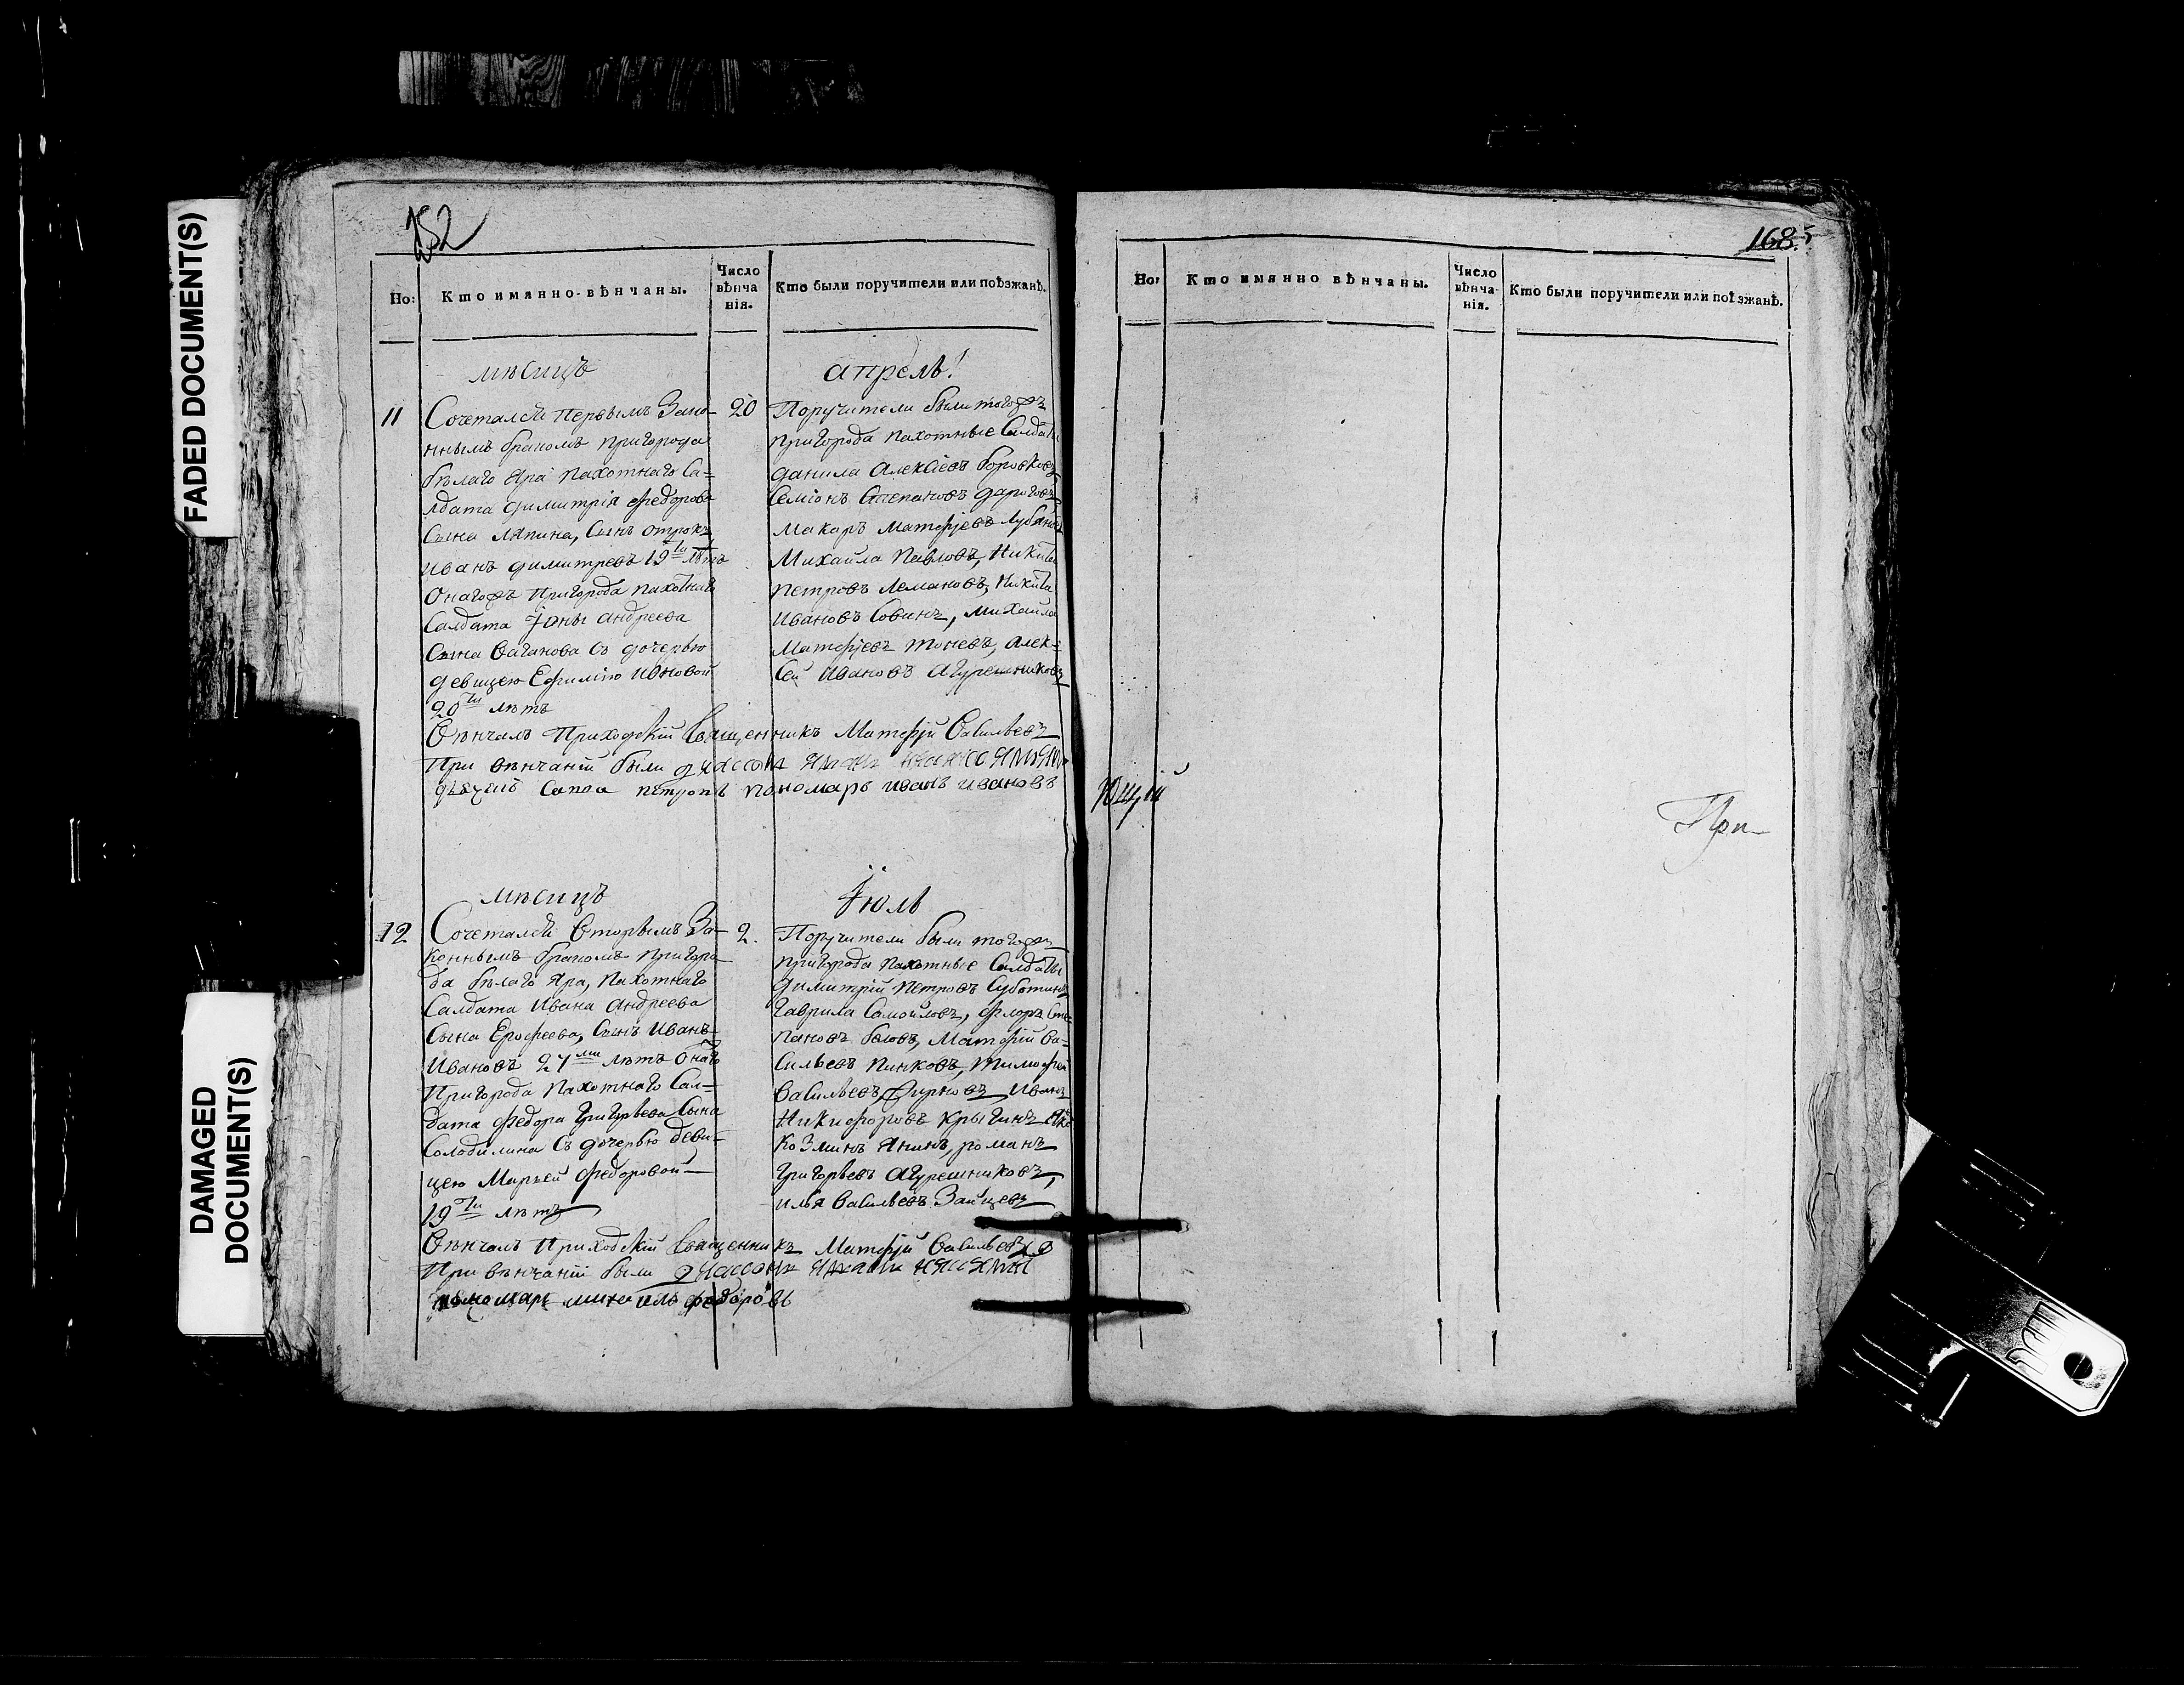 FADED DOCUMENT(S)
DAMAGED
DOCUMENT(S)
152
Но:
Кто имянно вѣнчаны.
Число
вѣнча
нія.
Кто были поручители или поѣзжанѣ.
мѣсицъ
апрель!
11
Сочеталсѧ первымъ Зако-
ннымъ бракомъ пригорода
бѣлаго Яра пахотнаго Са=
лдата димитрія Федорова
Сына ляпина, Сынъ отрокъ
иванъ димитревъ 19ти лѣтъ
Онагожъ пригорода пахотнаго
Салдата Іоны андреева
Сына Ваганова Съ дочерью
девицею Ефимію Ионовой
20ти лѣтъ
20
Поручители были тогожъ
пригорода пахотные Салдаты
данила Алексіевъ боровковъ
Семіонъ Степановъ
макаръ матѳіевъ
Михайла Павловъ, Никита
Петровъ Лемановъ, Никита
Ивановъ Совинъ, михаила
Матѳіевъ тоневъ, алек=
сѣй Ивановъ Агурешниковъ
Вѣнчалъ Приходскій Священникъ Матѳій Васильевъ
При вѣнчаніи были
Савва петровъ пономарь иванъ ивановъ
мѣсицъ
Іюль
12
Сочеталсѧ Вторымъ За-
коннымъ бракомъ пригоро-
да бѣлаго Яра, пахотнаго
Салдата Ивана Андреева
Сына Ерофеева, Сынъ Иванъ
Ивановъ 27ми лѣтъ Онаго
Пригорода Пахотнаго Сал=
дата Федора Григорьева Сына
Солодилина Съ дочерью деви=
цею Марьей Федоровой
19ти лѣтъ
2.
Поручители были тогожъ
пригорода пахотные Салдаты
димитрій петровъ Суботинъ
Гаврила Самойловъ, Флоръ Сте-
пановъ бѣловъ, Матѳій Ва=
сильевъ Пинковъ, Тимофей
Васильевъ, Фирновъ, Иванъ
Никифоровъ Крыгинъ
Козминъ Янинъ, романъ
Григорьевъ агурешниковъ,
илья Васильевъ Зайцевъ
Вѣнчалъ Приходскій Священникъ Матѳій Васильевъ
При вѣнчаніи были
пономарь михаилъ федоровъ
168.
Но:
Кто имянно вѣнчаны.
Число
вѣнча-
нія.
Кто были поручители или поѣзжанѣ.
При-